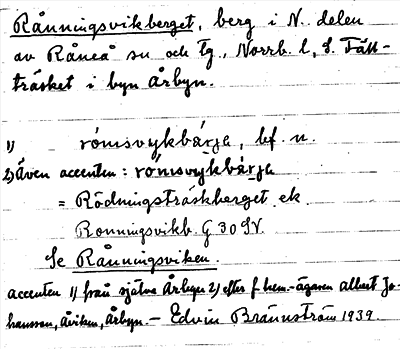 Rånningsvikberget, berg i N. delen
av Råneå sn och tg., Norrb. l., S. Fält-
träsket i byn Årbyn.
1) rómsvykbárja, bf. n.
2) Även accenten: rómsvykbárja
= Rödningsträskberget ek
Ronningsvikb. G 30 SV.
Se Rånningsviken.
accenten 1) från själva Årbyn 2) efter f. hem.-ägaren Albert Jo-
hansson, Åviken, Årbyn. — Edvin Brännström 1939.